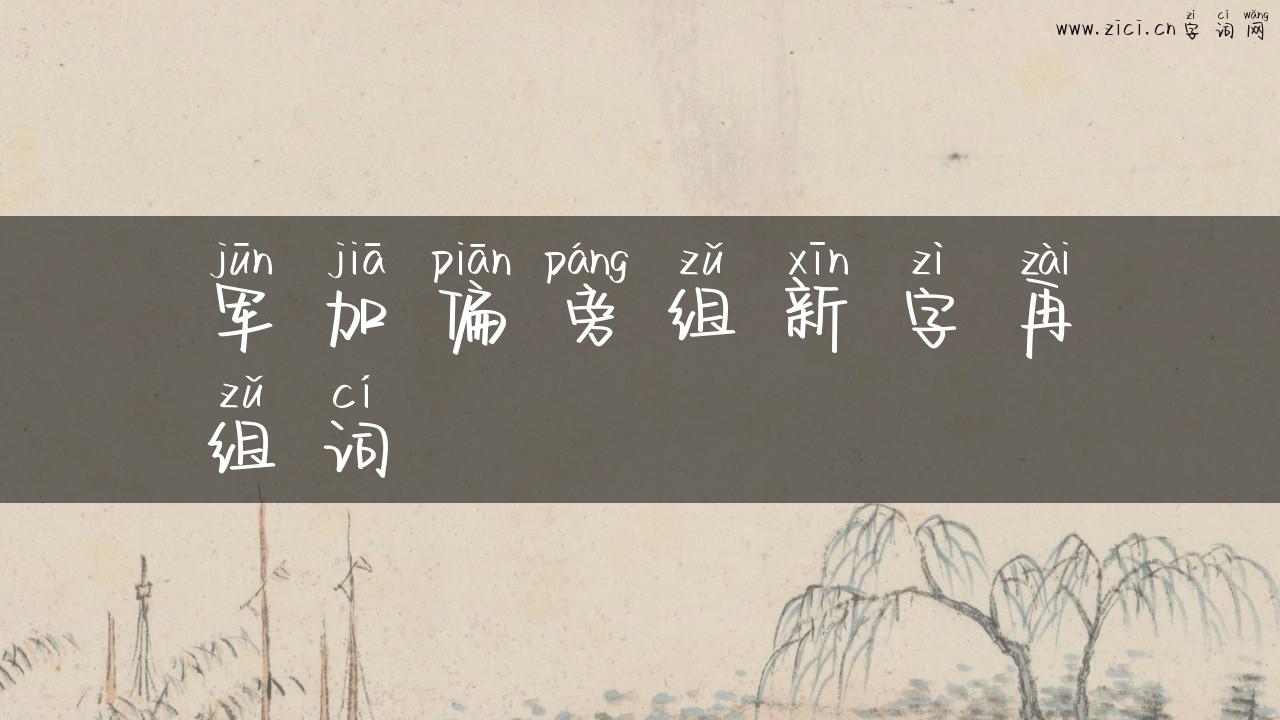 zì cí wǎng
www.zici.cn 字词网
jūn jiā piān páng zǔ xīn zì zài
军加偏旁组新字再
zǔ cí
组词